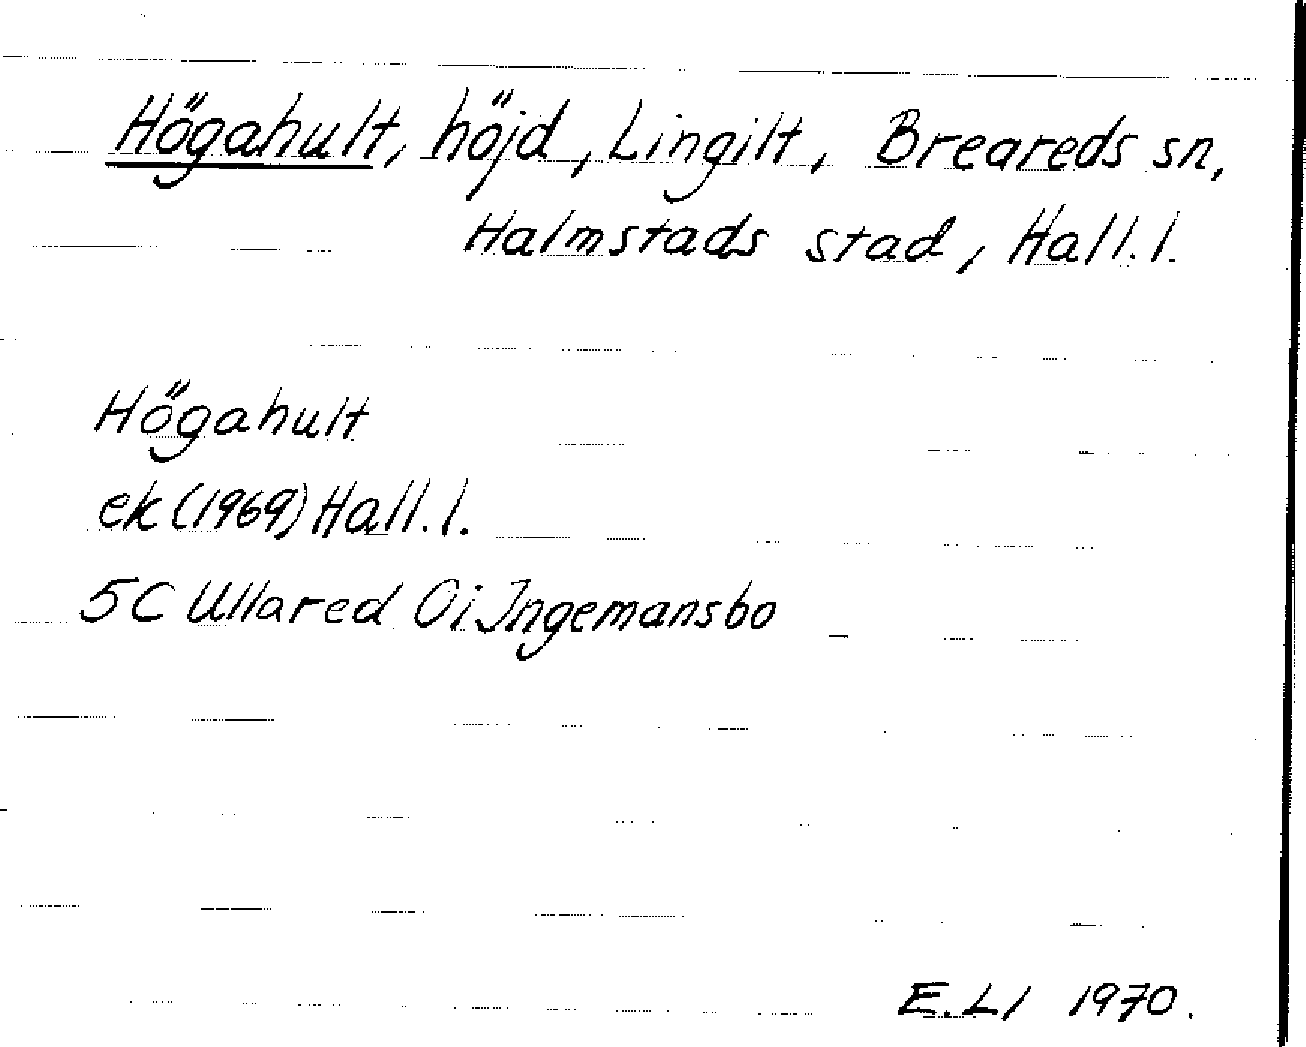 Högahult, höjd, Lingilt, Breareds sn,
Halmstads stad, Hall.l.
Högahult
ek (1969) Hall.l.
5C Ullared 0i Ingemansbo
E.Ll 1970.